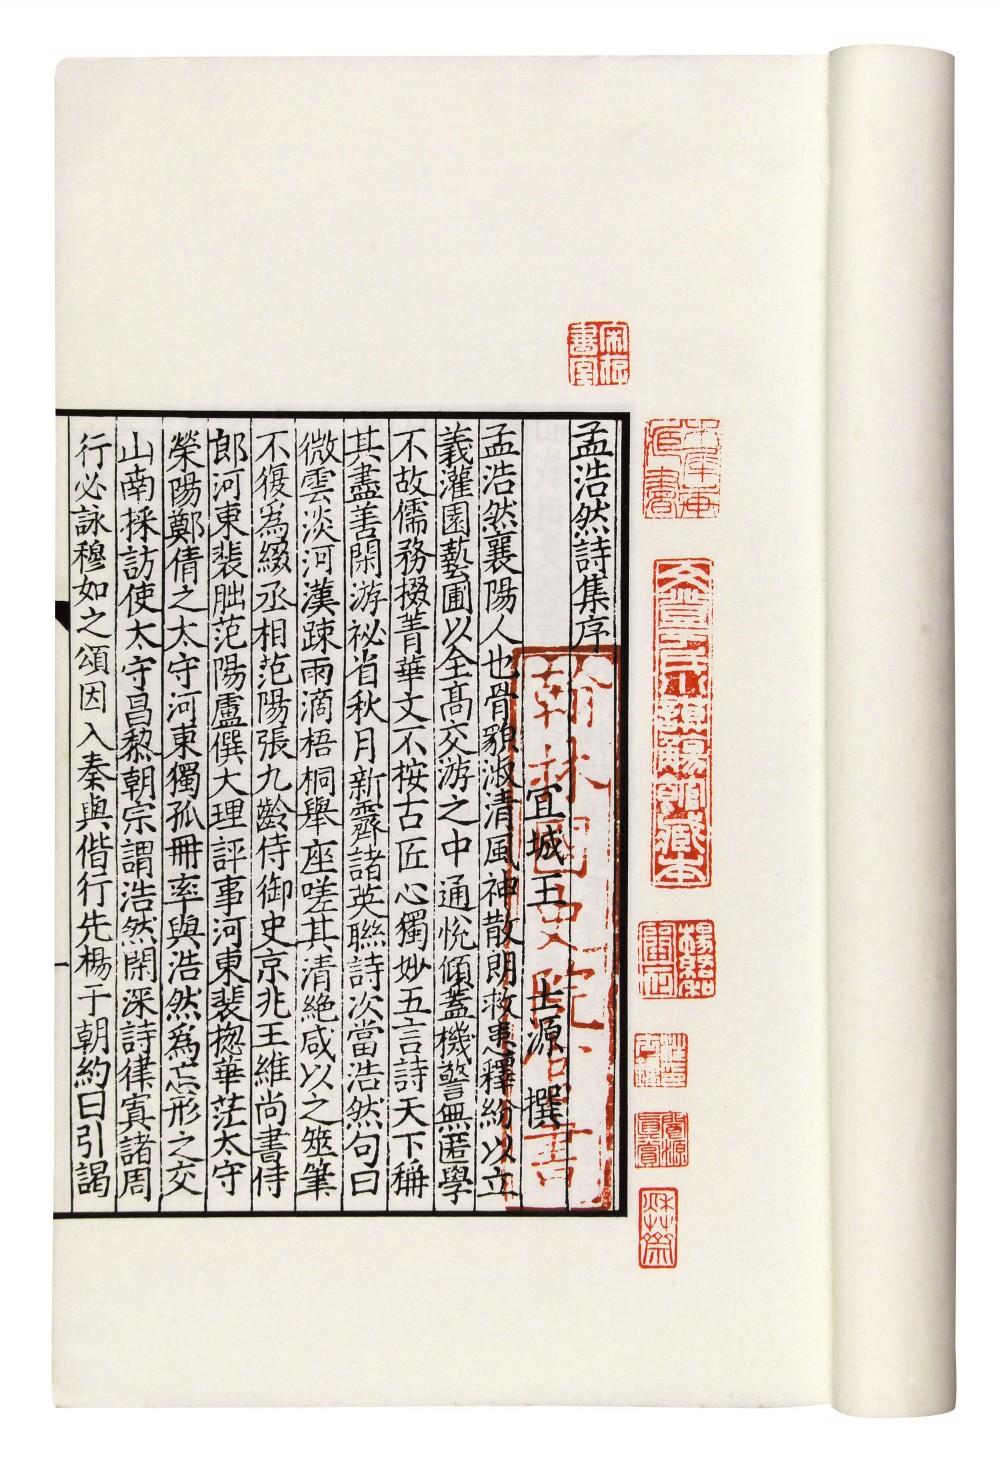 孟浩然詩集序
宜城王士源撰
孟浩然襄陽人也骨貌淑清風神散朗救患釋紛以立
義灌園藝圃以全髙交游之中通悅傾蓋機警無匿學
不故儒務掇菁華文不按古匠心獨妙五言詩天下稱
其盡善閑游祕省秋月新霽諸英聯詩次當浩然句曰
微雲淡河漢疎雨滴梧桐舉座嗟其清絶咸以之筆
不復爲綴丞相范陽張九齡侍御史京兆王維尚書侍
郎河東裴朏范陽盧僎大理評事河東裴揔華茫太守
榮陽鄭倩之太守河東獨孤冊率與浩然爲忘形之交
山南採訪使太守昌黎朝宗謂浩然閑深詩律寘諸周
行必詠穆如之頌因入秦與偕行先楊于朝約日引謁
宋存書室
東郡楊紹和
翰林國史院官書